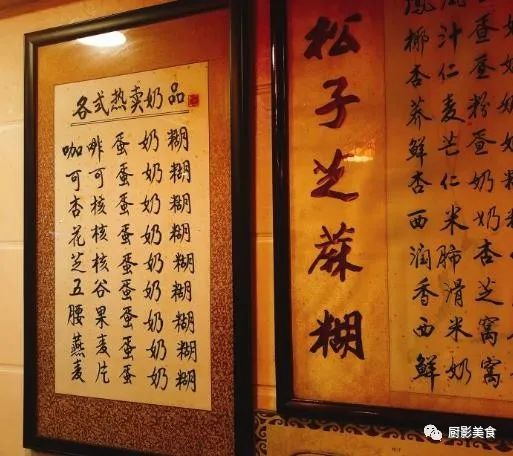 各式热卖奶品
咖啡蛋奶糊
可可蛋奶糊
杏核蛋奶糊
花核蛋奶糊
芝核蛋奶糊
五谷蛋奶糊
腰果蛋奶糊
燕麦蛋奶糊
麦片蛋奶糊
松子芝蔴糊
椰汁蛋奶
杏仁蛋奶
荞麦粉奶
鲜芒蛋奶
杏仁奶
西米奶
润肺杏
香滑芝
西米窝
鲜奶窝
厨影美食